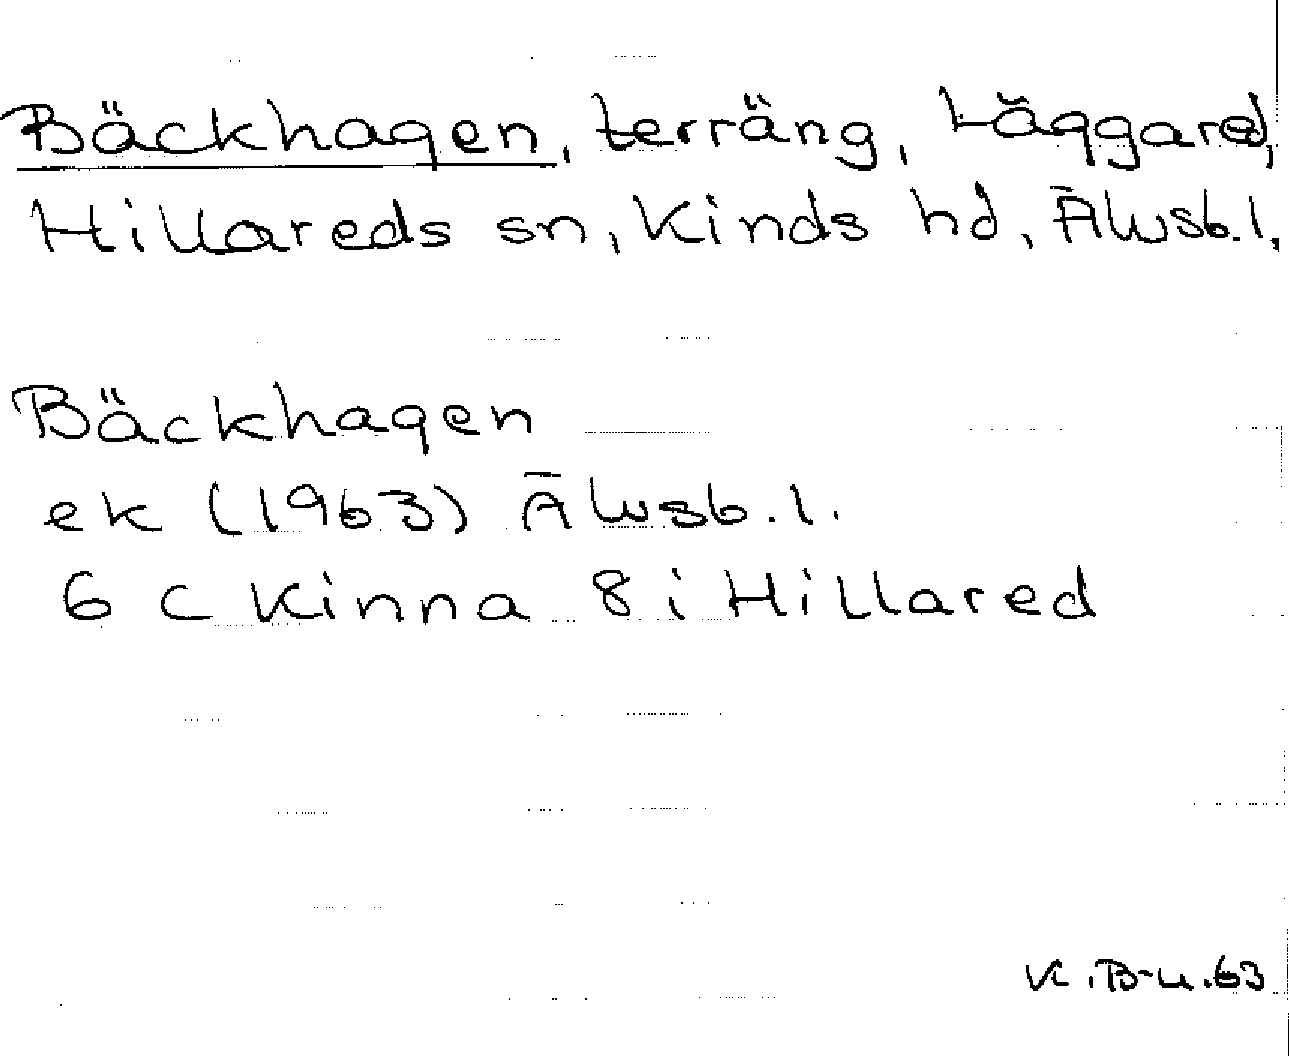 Bäckhagen, terräng, Läggared,
Hillareds sn, Kinds hd, Älvsb. l.
Bäckhagen
ek (1963) Älvsb. l.
6 C Kinna 8 i Hillared
K. B-u. 63